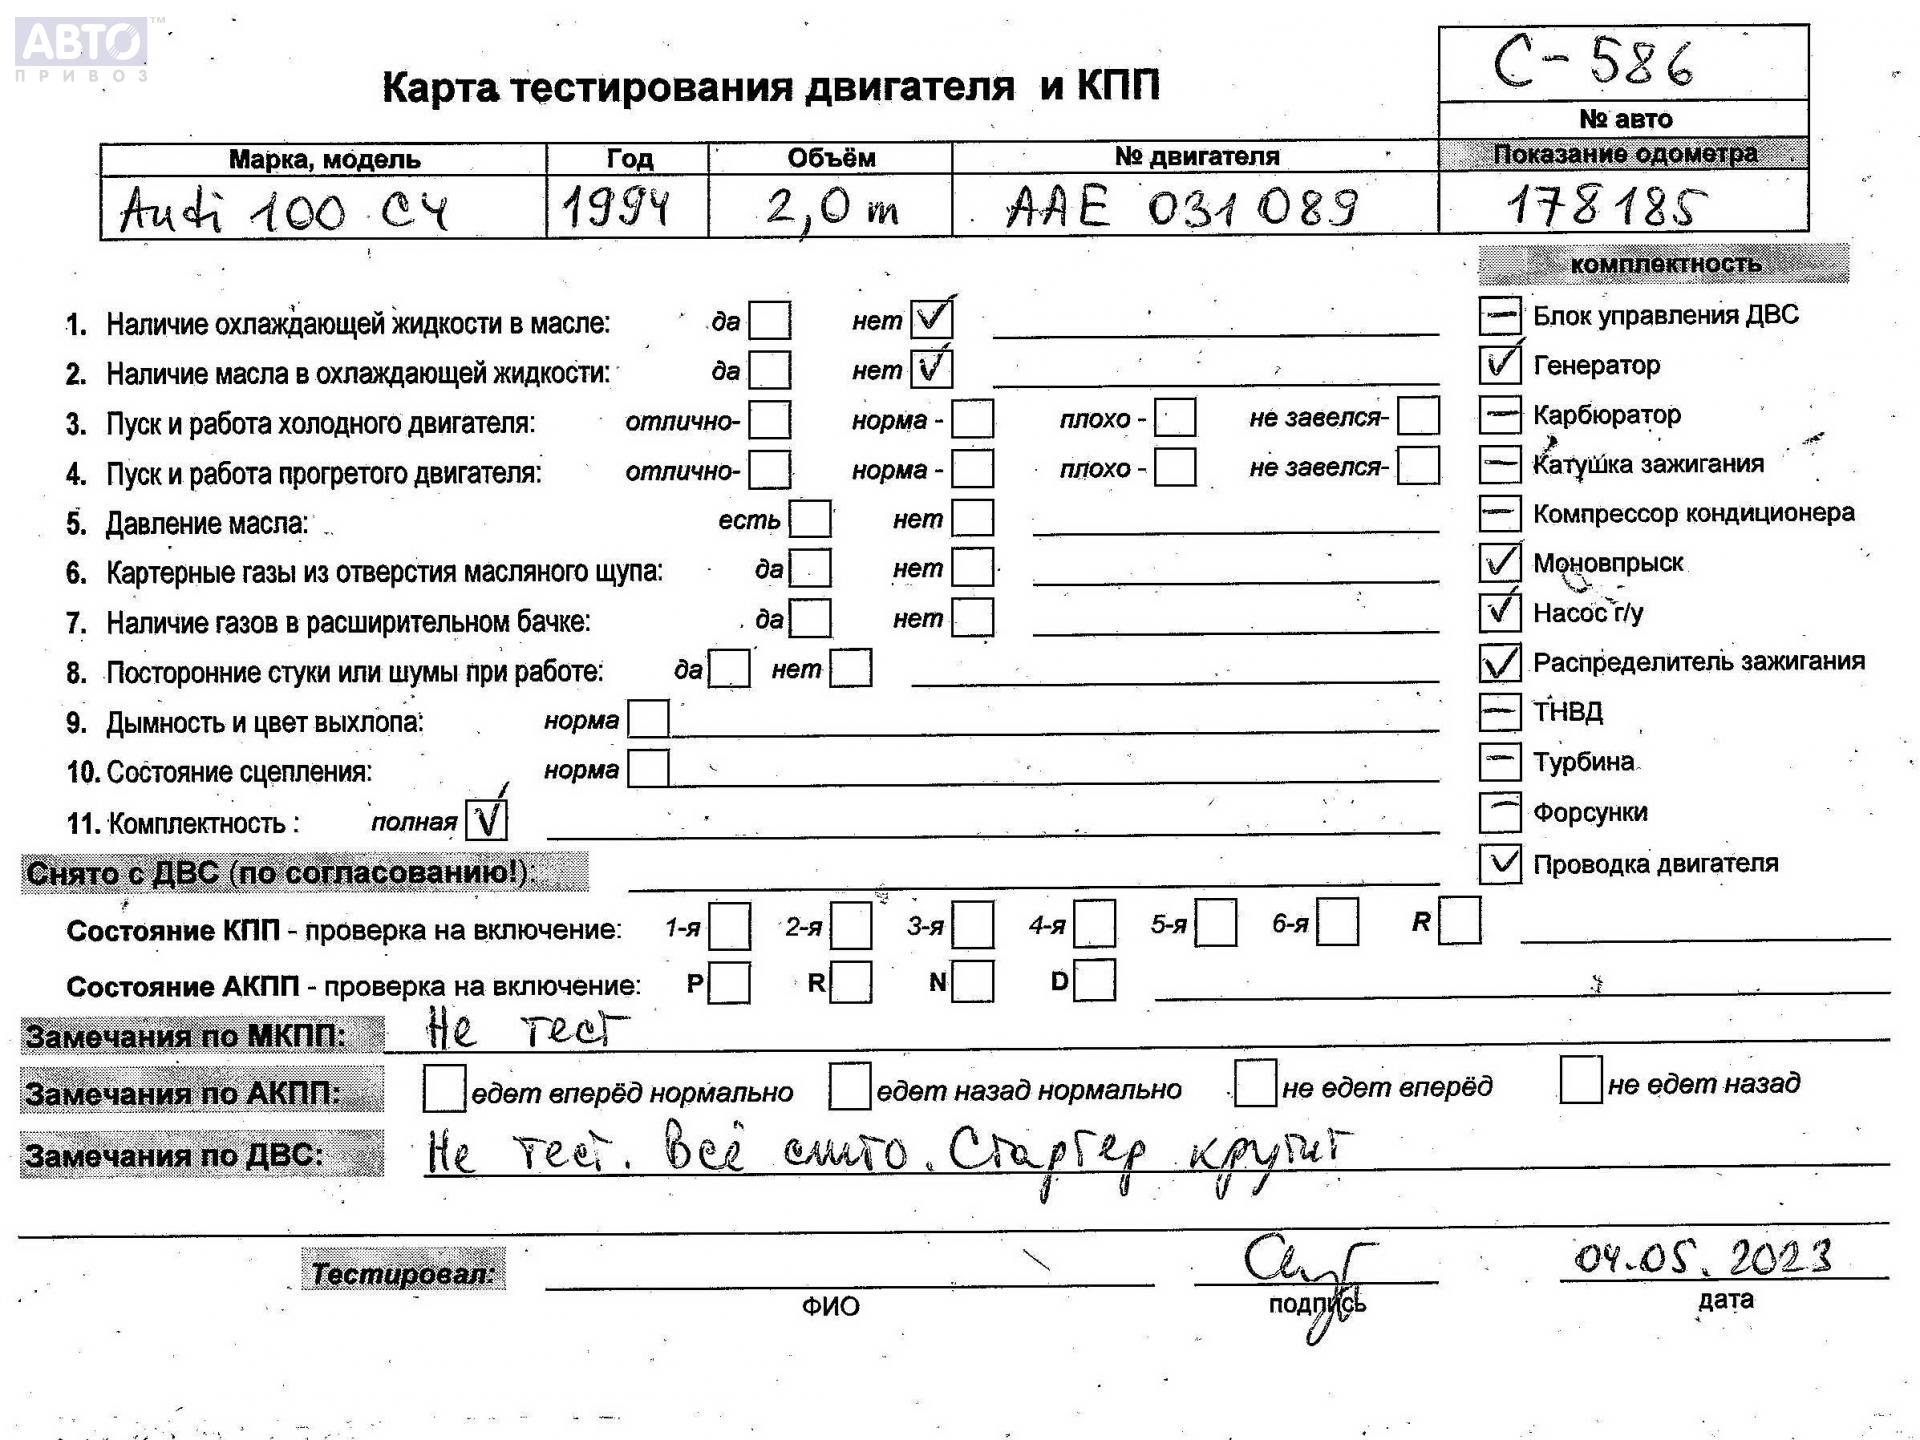 АВТО™
ПРИВОЗ
С-586
Карта тестирования двигателя и КПП
№ авто
Марка, модель Год Объём № двигателя Показание одометра
Audi 100 C4 1994 2,0 m AAE 031089 178185
комплектность
1. Наличие охлаждающей жидкости в масле: да нет ✓
Блок управления ДВС
2. Наличие масла в охлаждающей жидкости: да нет ✓
✓ Генератор
3. Пуск и работа холодного двигателя: отлично- норма - плохо - не завелся-
Карбюратор
4. Пуск и работа прогретого двигателя: отлично- норма - плохо - не завелся-
Катушка зажигания
5. Давление масла: есть нет
Компрессор кондиционера
6. Картерные газы из отверстия масляного щупа: да нет
✓ Моновпрыск
7. Наличие газов в расширительном бачке: да нет
✓ Насос г/у
8. Посторонние стуки или шумы при работе: да нет
✓ Распределитель зажигания
9. Дымность и цвет выхлопа: норма
ТНВД
10. Состояние сцепления: норма
Турбина
11. Комплектность : полная ✓
Форсунки
Снято с ДВС (по согласованию!):
✓ Проводка двигателя
Состояние КПП - проверка на включение: 1-я 2-я 3-я 4-я 5-я 6-я R
Состояние АКПП - проверка на включение: P R N D
Замечания по МКПП: Не тест
Замечания по АКПП: едет вперёд нормально едет назад нормально не едет вперёд не едет назад
Замечания по ДВС: Не тест. Всё снято. Стартер крутит
Тестировал: 04.05.2023
ФИО подпись дата